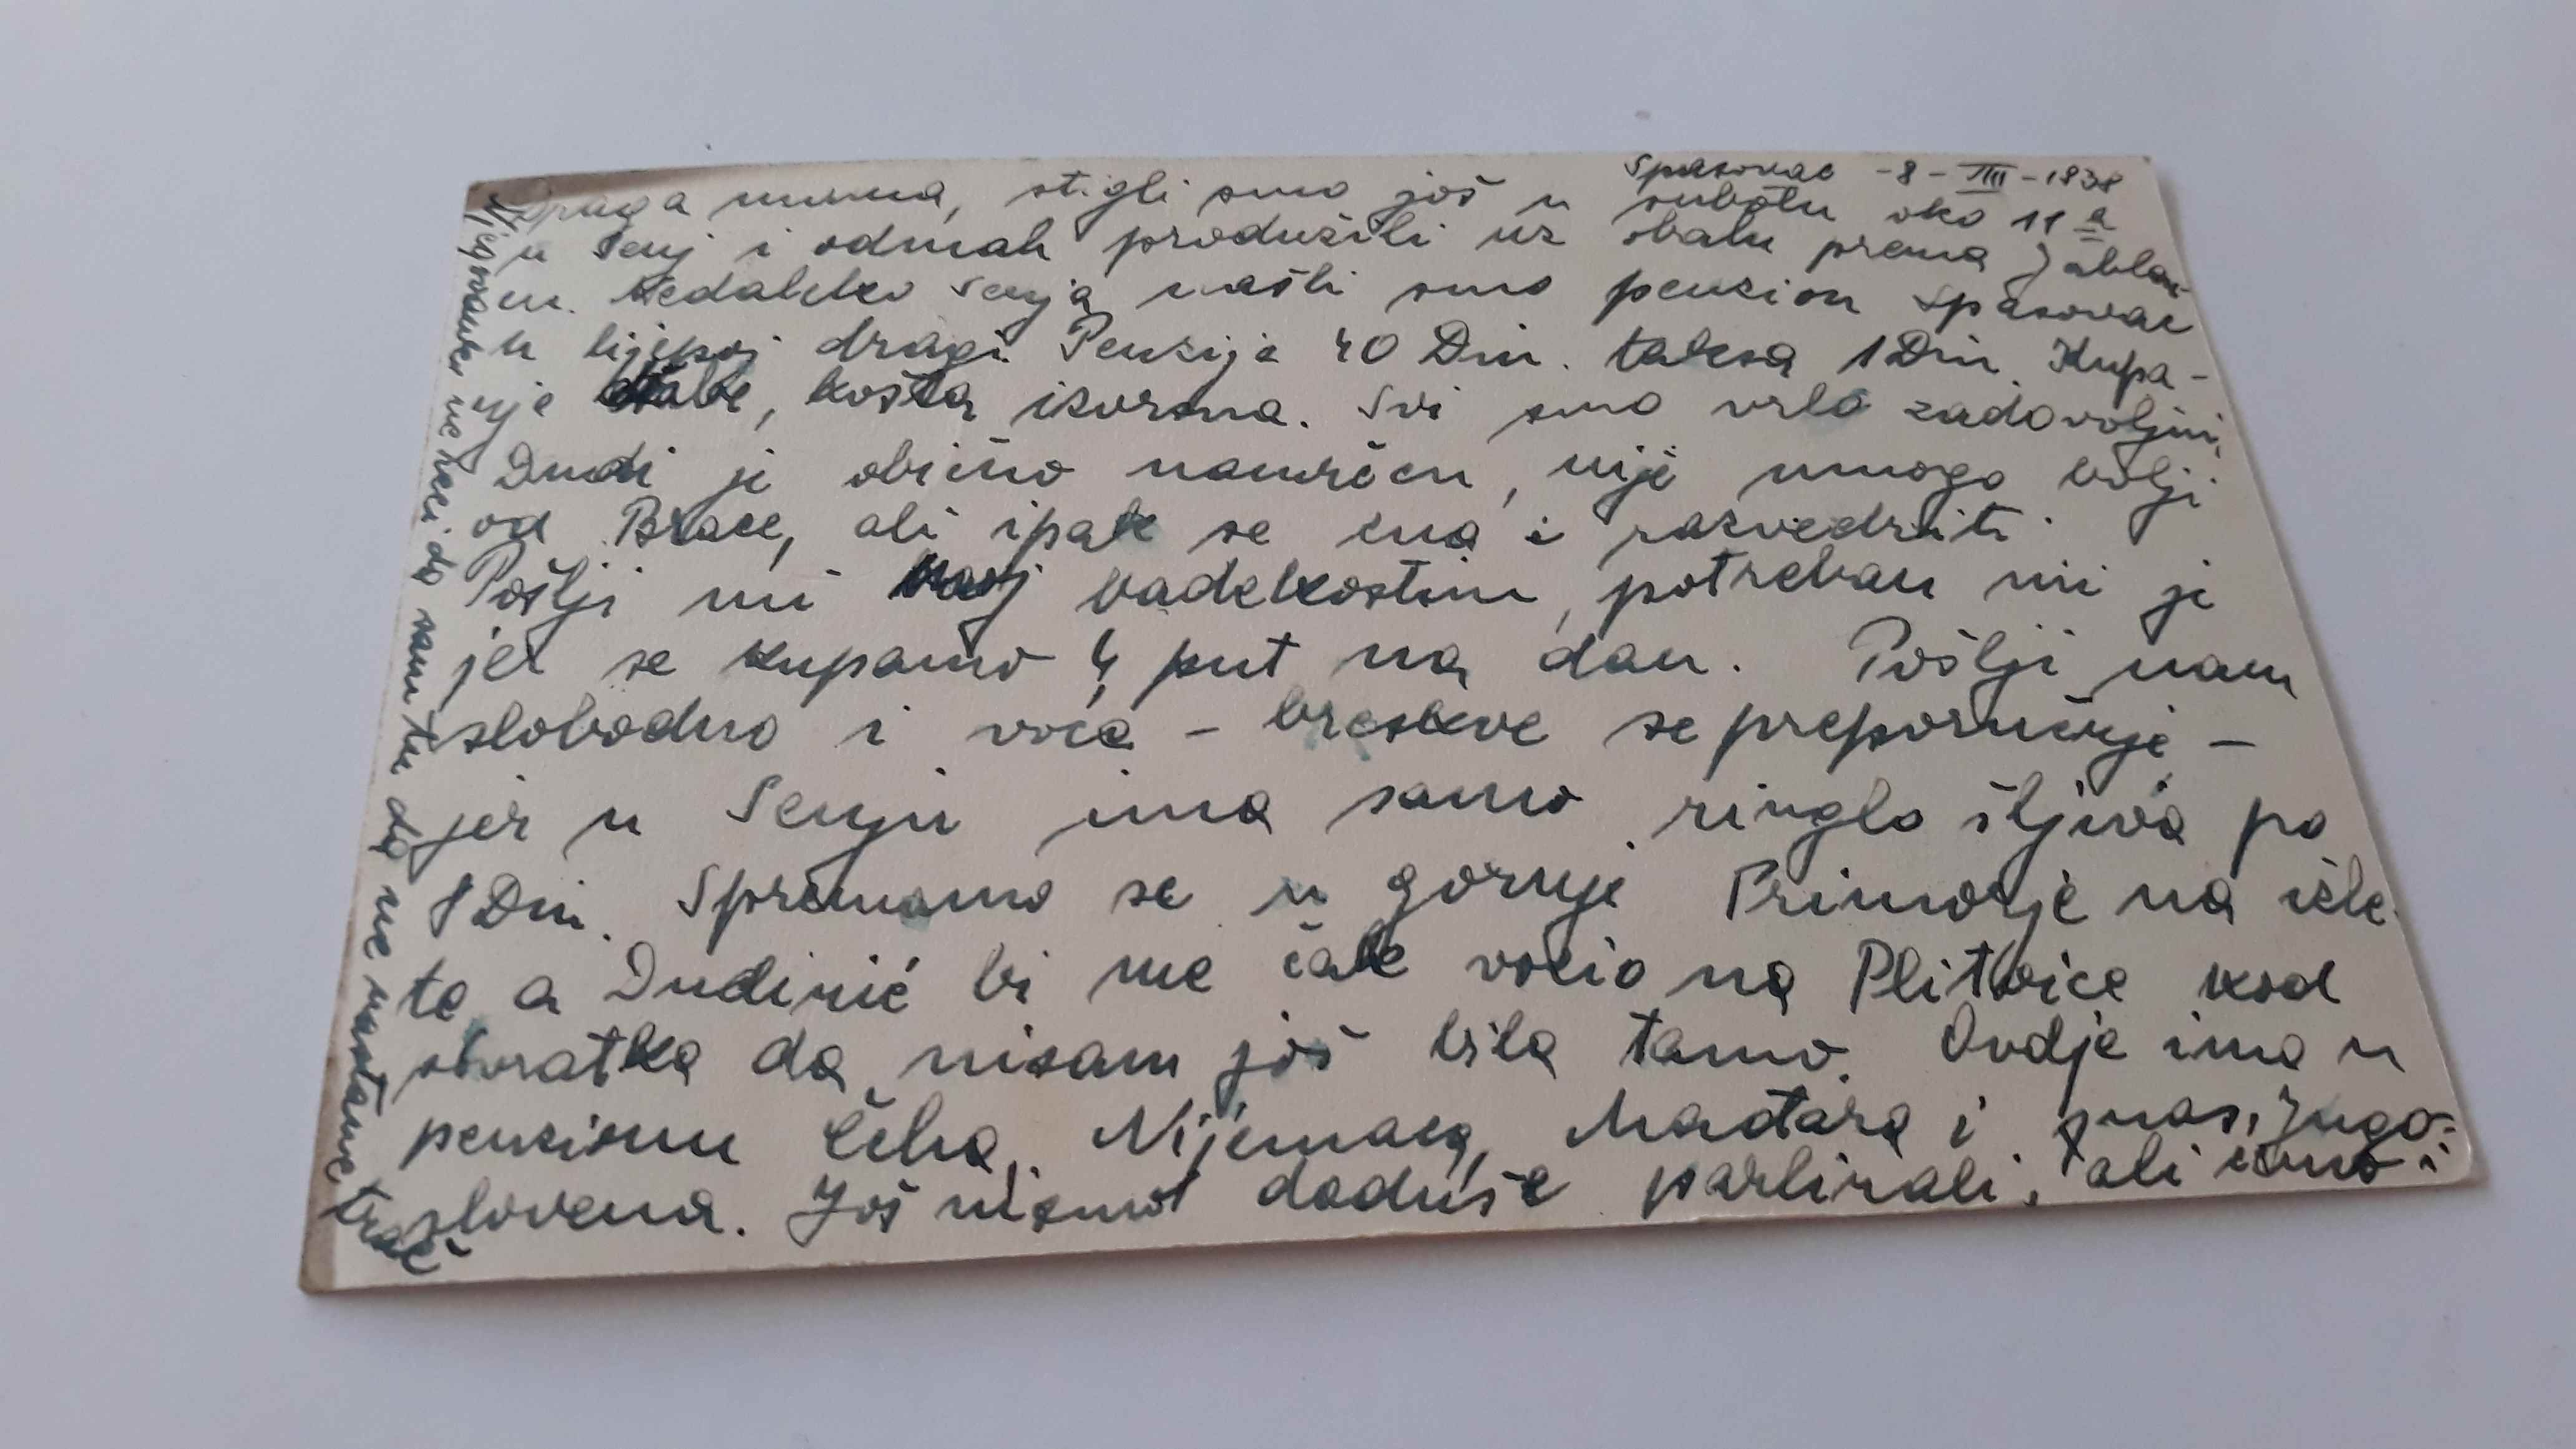 Spasovac - 8 - VIII - 1938
Draga mama, stigli smo još u subotu oko 11 h
u Senj i odmah produžili uz obalu prema Jablan-
cu. Nedaleko Senja našli smo penzion Spasovac
u lijepoj dragi. Penzija 40 Din. taksa 1 Din. Kupa-
nje košta izvrsna. Svi smo vrlo zadovoljni,
Dudi je obično namrčen, nije mnogo bolji
od Brace, ali ipak se zna i razvedriti.
Pošlji mi badekostim, potreban mi je
jer se kupamo 4 put na dan. Pošlji nam
slobodno i voća - breskve se preporučuje -
jer u Senju ima samo ringlo šljiva po
8 Din. Spremamo se u gornje Primorje na izle-
te, a Dudinić bi me čak vozio na Plitvice kod
povratka da nisam još bila tamo. Ovdje ima u
penzionu Čeha, Nijemaca, Mađara i nas, Jugo-
slovena. Još nismo doduše parlirali, ali ćemo i
Njegovanke ne neki da sam tu da ne nastane trač